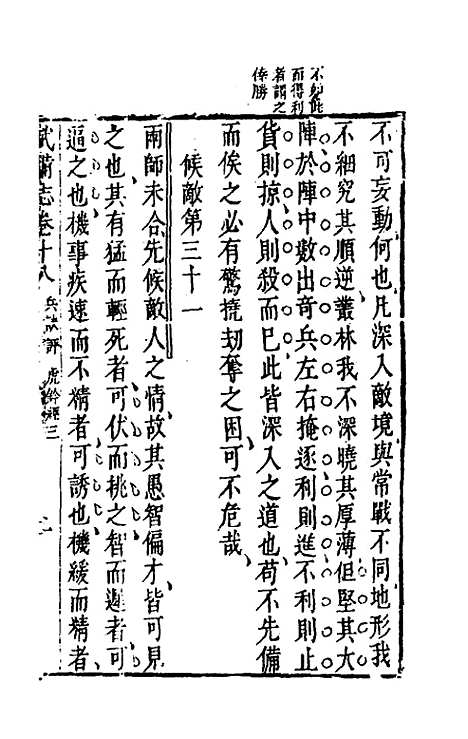 不知此
而得利
者謂之
倖勝
不可妄動何也凡深入敵境與常戰不同地形我
不細究其順逆叢林我不深曉其厚薄但堅其大
陣於陣中數出奇兵左右掩逐利則進不利則止
貨則掠人則殺而已此皆深入之道也苟不先備
而俟之必有驚撓刧奪之困可不危哉
候敵第三十一
兩師未合先候敵人之情故其愚智偏才皆可見
之也其有猛而輕死者可伏而挑之智而遲者可
逼之也機事疾速而不精者可誘也機緩而精者
武備志卷十八 兵訣評 虎鈐經三